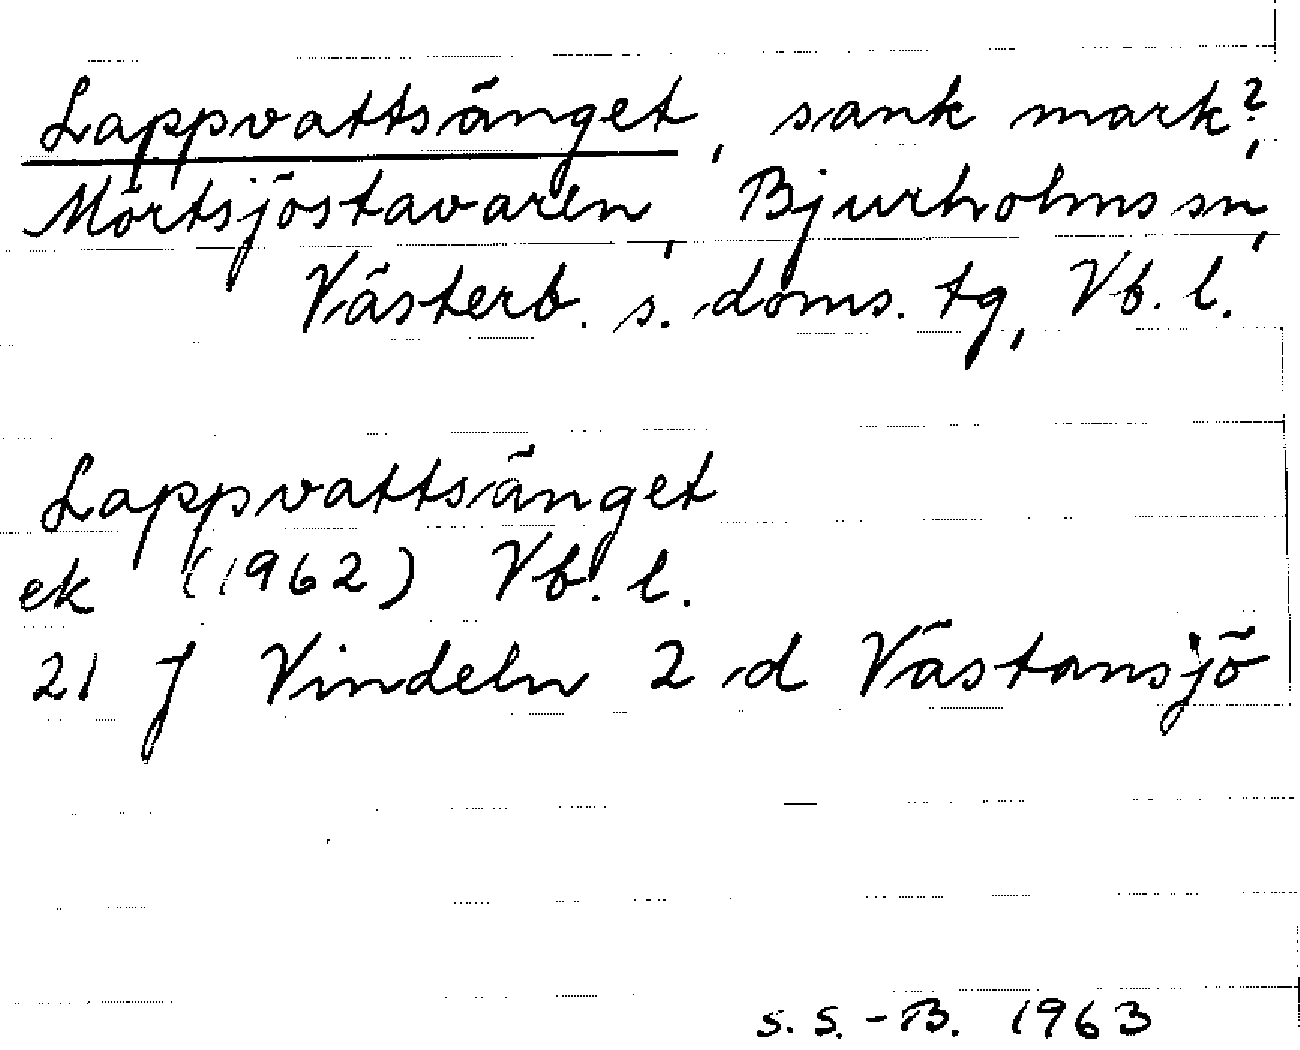 Lappvattsänget, sank mark?,
Mörtsjöstavaren, Bjurholms sn,
Västerb. s. doms. tg, Vb. l.
Lappvattsänget
ek (1962) Vb. l.
21 J Vindeln 2 d Västansjö
S. S. - B. 1963